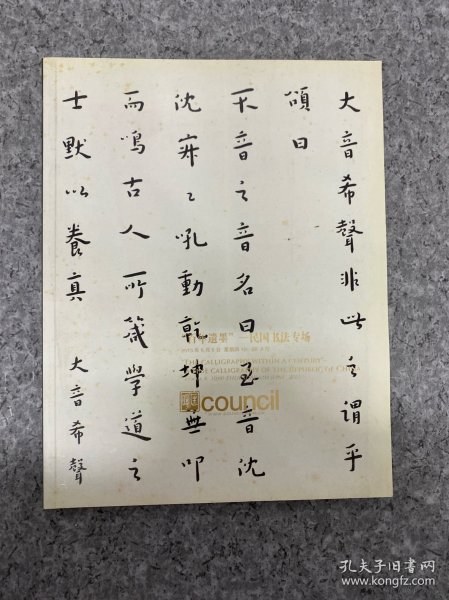 大音希聲非此之謂乎
頌曰
不音之音名曰至音沈
沈寂々吼動乾坤無叩
而鳴古人所箴學道之
士默以養真
大音希聲
百年遺墨”—民国书法专场
"THE CALLIGRAPHY WITHIN A CENTURY"
CALLIGRAPHY OF THE REPUBLIC OF CHINA
council
孔夫子旧书网
www.kongfz.com